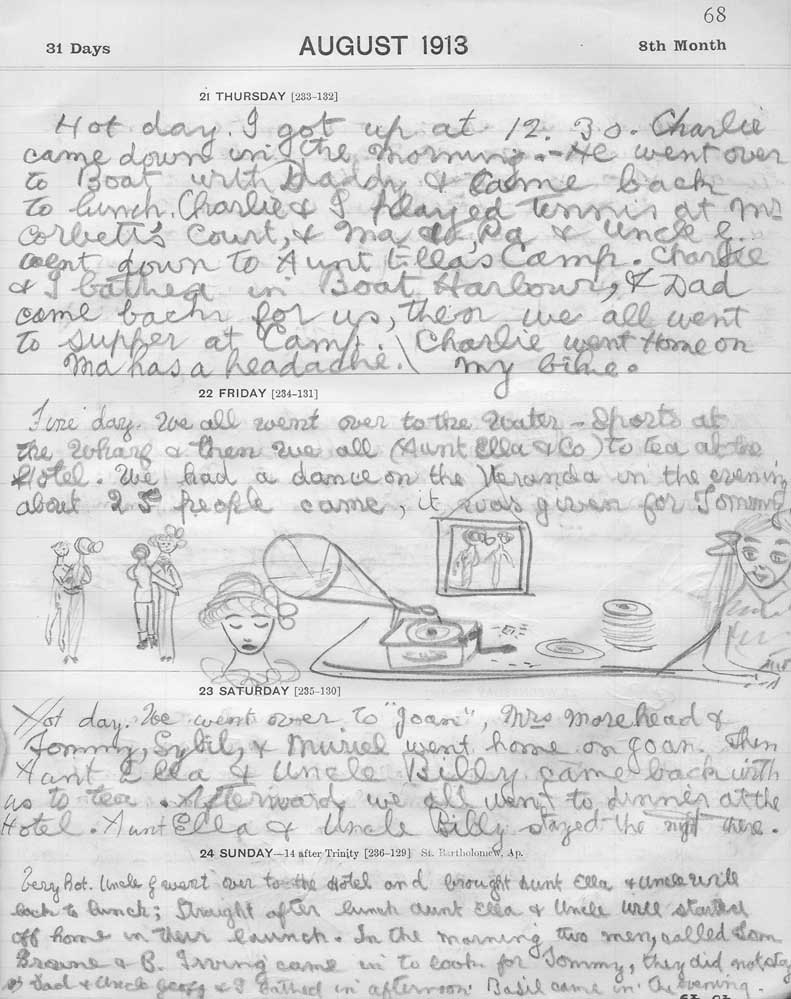 68
31 Days AUGUST 1913 8th Month
21 THURSDAY [233-132]
Hot day. I got up at 12.30. Charlie
came down in the morning. - He went over
to Boat with Daddy & came back
to lunch. Charlie & I played tennis at Mrs
Corbett's Court, & Ma Pa & Uncle G.
went down to Aunt Ella's Camp. Charlie
& I bathed in Boat Harbour, & Dad
came back for us, then we all went
to supper at Camp. Charlie went Home on
Ma has a headache. \ my bike.
22 FRIDAY [234-131]
Fine day. We all went over to the Water - Sports at
the Wharf & then we all (Aunt Ella & Co) to tea at the
Hotel. We had a dance on the Veranda in the evening
about 25 people came, it was given for Tommy.
23 SATURDAY [235-130]
Hot day. We went over to "Joan", Mrs Morehead &
Tommy, Sybil, & Muriel went home on Joan. Then
Aunt Ella & Uncle Billy came back with
us to tea. Afterward we all went to dinner at the
Hotel. Aunt Ella & Uncle Billy stayed the night there.
24 SUNDAY—14 after Trinity [236-129] St. Bartholomew, Ap.
Very hot. Uncle G went over to the Hotel and brought Aunt Ella & Uncle Will
back to lunch; Straight after lunch Aunt Ella & Uncle Will started
off home in their launch. In the morning two men, called Tom
Browne & B. Irving came in to look for Tommy, they did not stay
Dad & Uncle Georg & I bathed in afternoon. Basil came in the evening.